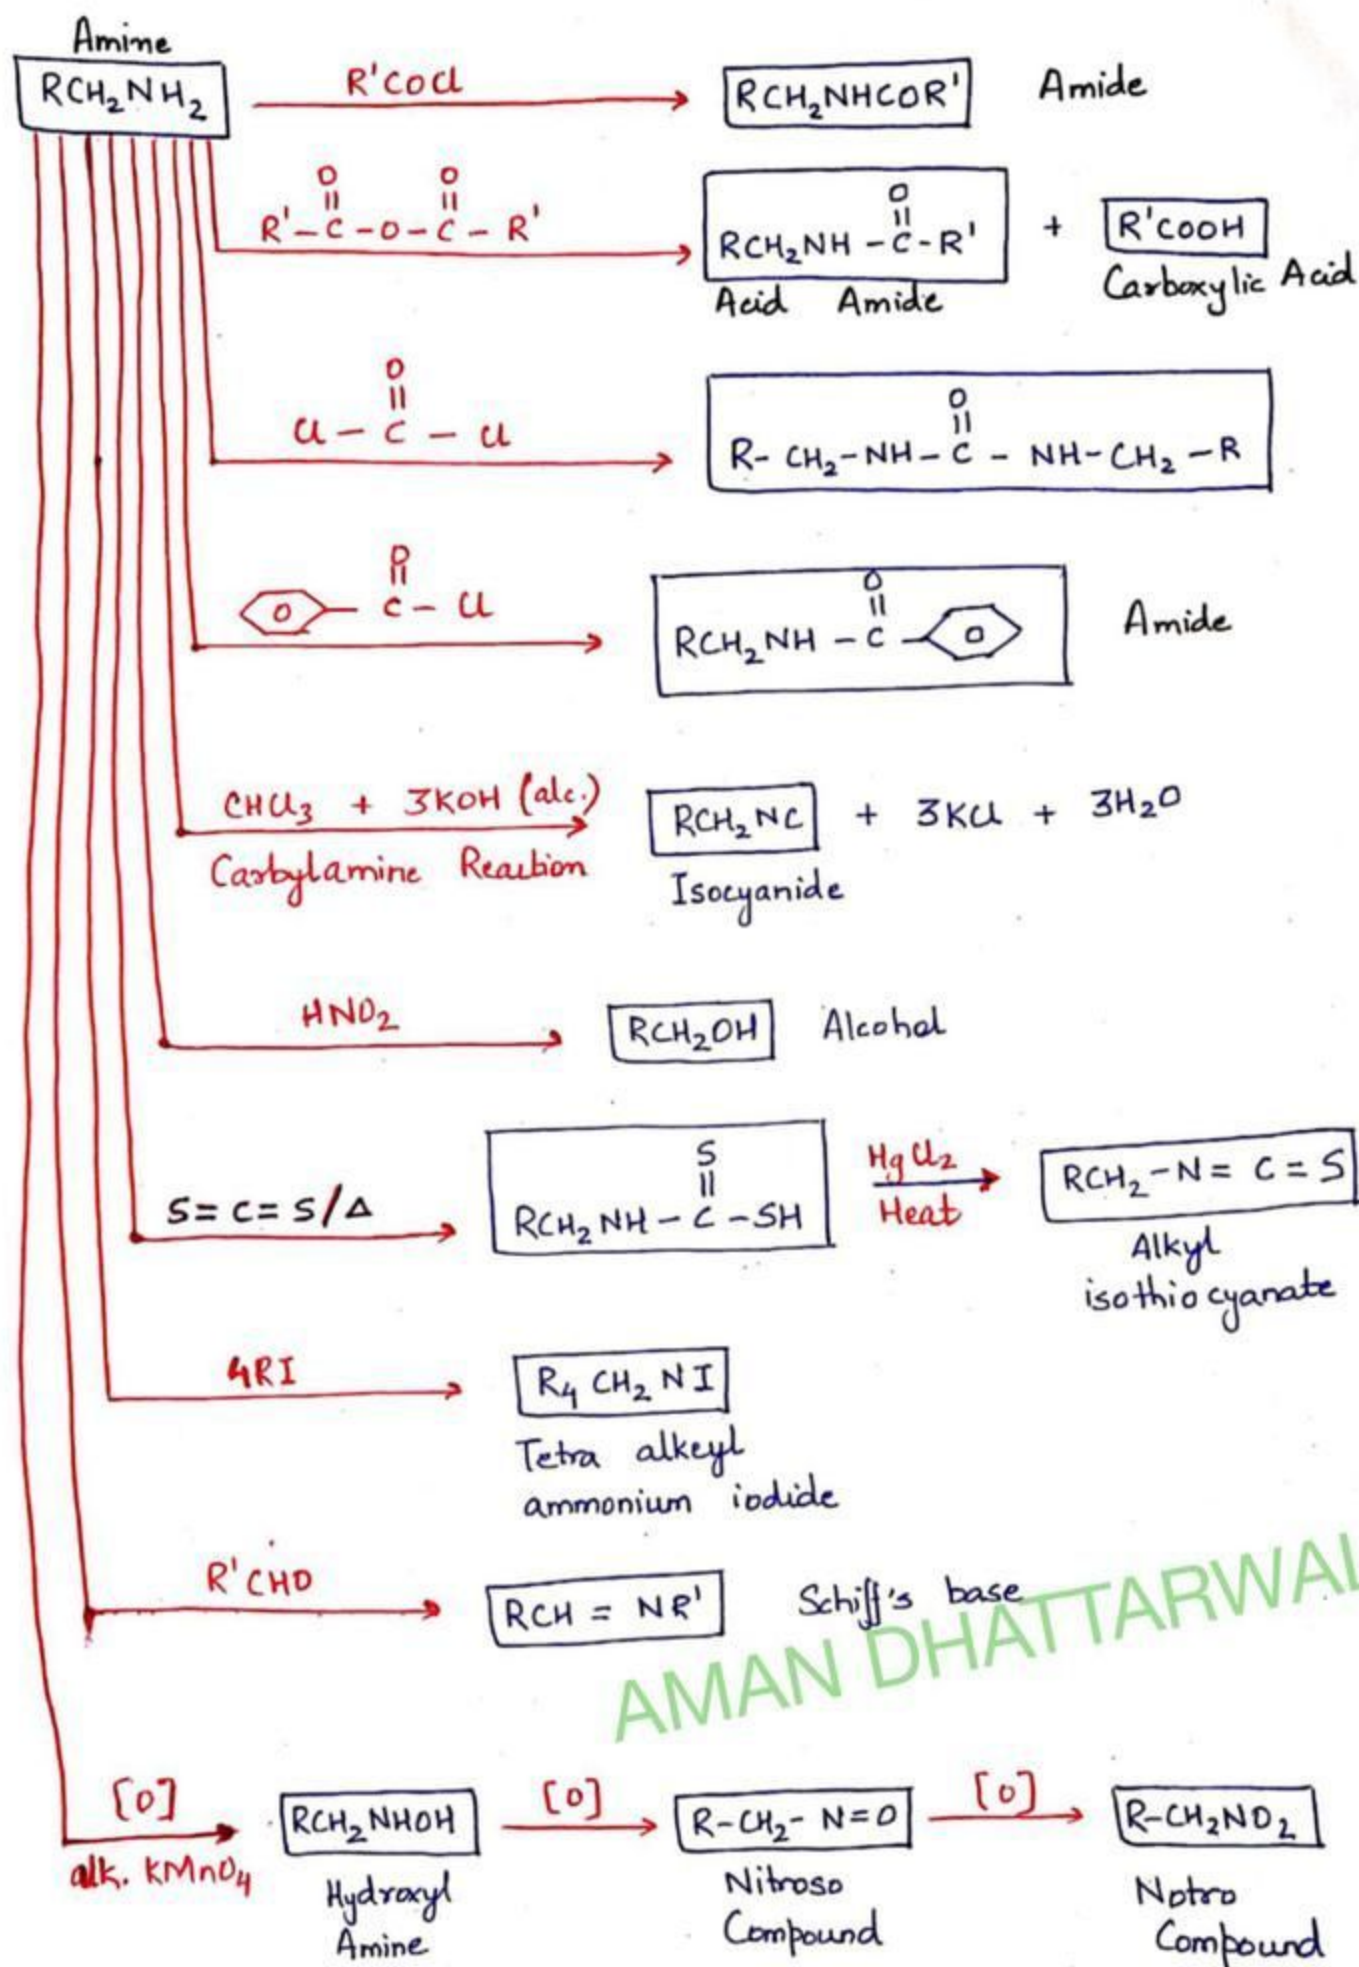 Amine
RCH₂NH₂ R'COCl RCH₂NHCOR' Amide
O O
|| ||
R'–C–O–C–R'
O
||
RCH₂NH–C–R' + R'COOH
Acid Amide Carboxylic Acid
O
||
Cl–C–Cl
O
||
R-CH₂-NH–C–NH-CH₂–R
O
||
C–Cl
O
||
RCH₂NH–C– Amide
CHCl₃ + 3KOH (alc.) RCH₂NC + 3KCl + 3H₂O
Carbylamine Reaction Isocyanide
HNO₂ RCH₂OH Alcohol
S=C=S/Δ
S
||
RCH₂NH–C–SH
HgCl₂
Heat
RCH₂–N=C=S
Alkyl
isothiocyanate
4RI R₄CH₂NI
Tetra alkeyl
ammonium iodide
R'CHO RCH=NR' Schiff's base
AMAN DHATTARWAL
[O] RCH₂NHOH [O] R-CH₂-N=O [O] R-CH₂NO₂
alk. KMnO₄ Hydroxyl Nitroso Notro
Amine Compound Compound